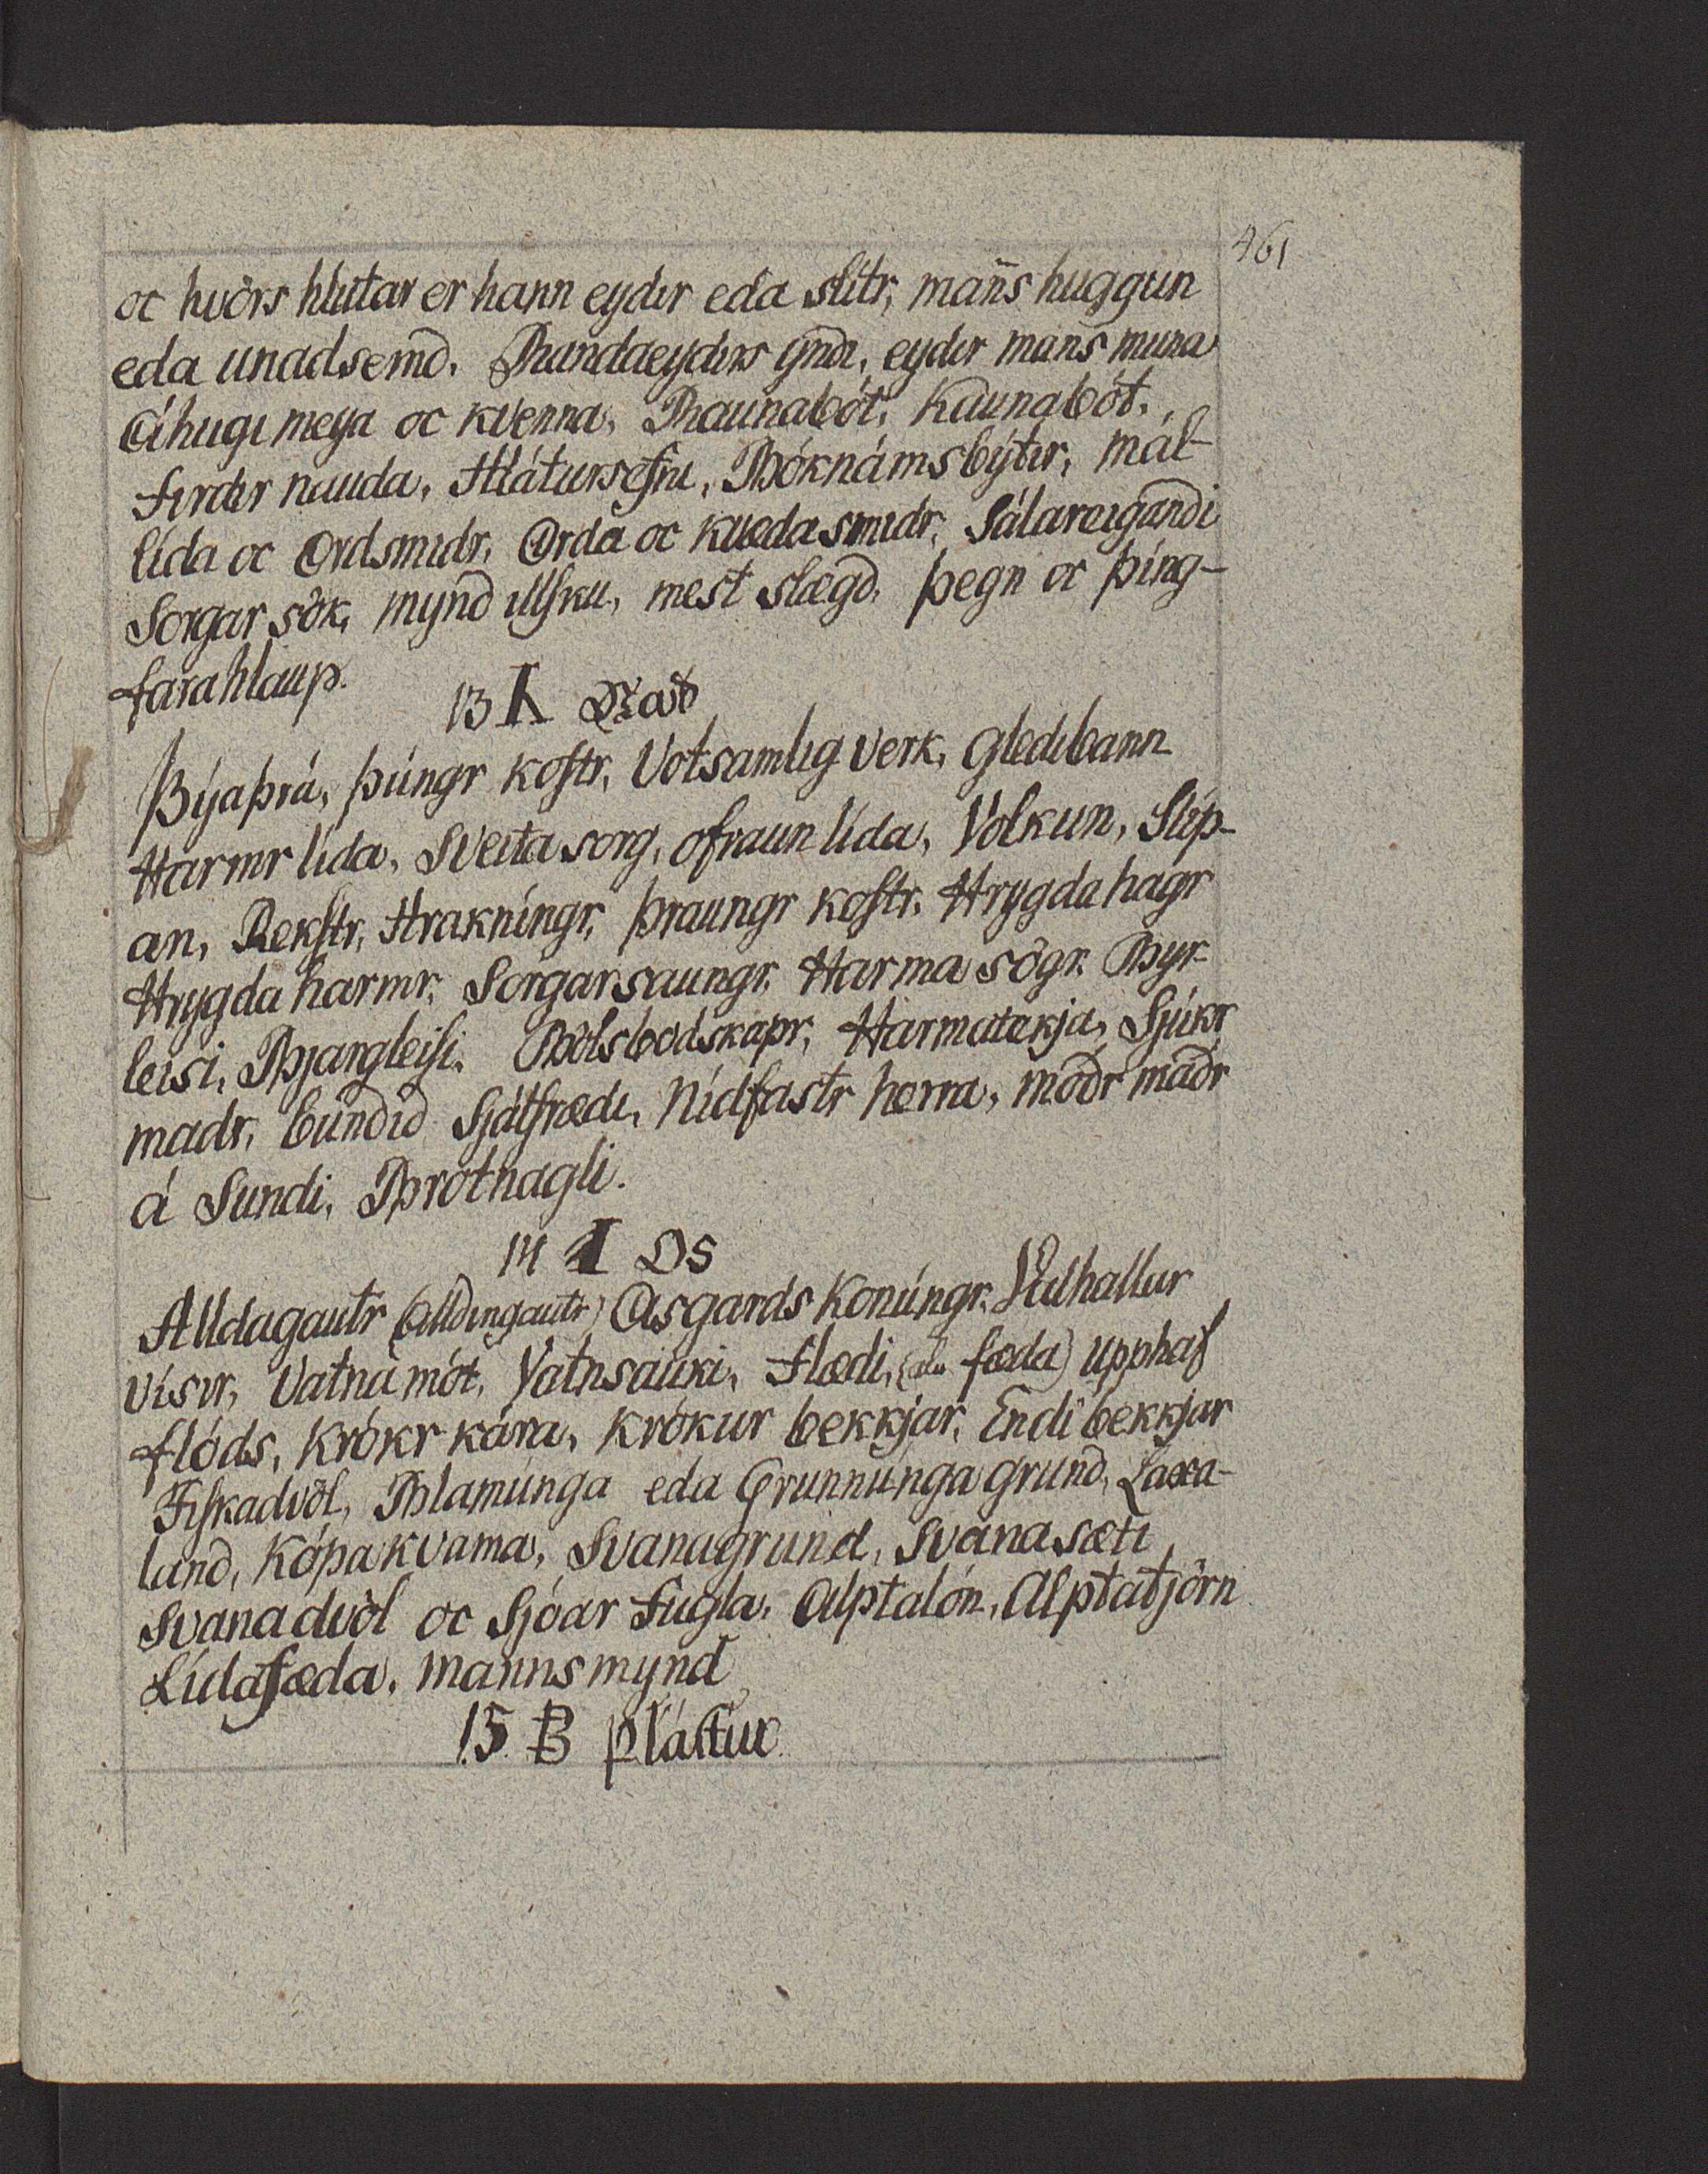 461
oc hvörs hlutar er hann eydir eda slitr, man̄s huggun
eda unadsemd. Bandaeydirs yndi, eydir mans muna
áhugi meya oc kvenna. Baunabót. Kaunabót.
firdir nauda. Hlátursefni. Bóknámsbýtir, mál-
lída oc Ordsmidr. Orda oc kvædasmidr. Sálareigandi
Sorgar sök, mynd illsku, mest slægd. þegn oc þíng-
farahlaup.
13 ᚴ
Býaþrá, þúngr kostr, Votsamlig verk, gledibann
Harmr lída, Sveita sorg, ofraun lída, Volkun, Slíp-
an, Rekstr, Hrakníngr, þraungr kostr. Hrygda hagr
Hrygda harmr, Sorgar saungr. Harma sögr. Byr-
leisi, Bjargleisi. Bölsbodskapr, Harmatekja, Sjúkr
madr, bundid Sjátfrædi, Nídfastr herra, módr madr
á Sundi, Brotnagli.
14 OS
Alldagautr (alldingautr) Asgards Konúngr. Valhallur
vísir, Vatna mót, Vatnsauki, Flædi, fæda) upphaf
flóds, Krókr kára, krókur bekkjar, Endi bekkjar
Fiskadvöl, Blamúnga eda Grunnúnga grund, Laxa-
land, Kópa kvama, Svanagrund, Svanasæti
Svanadvöl oc Sjóar fugla. Alptalón, Alptatjörn
Lídafæda. manns mynd
15. B plástur